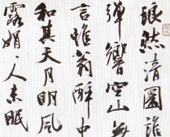 琅然清圜誰
彈響空山無
言惟翁醉中
和其天月明風
露娟々人未眠